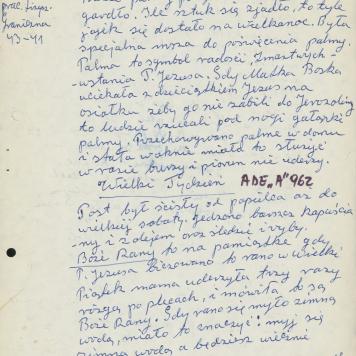 gardło. Ile sztuk się zjadło, to tyle
prac. fizycz.
43-41
jajek się dostało na wielkanoc. Była
specjalna msza do poświęcenia palmy.
Palma to symbol radości, Zmartwych-
wstania P. Jezusa. Gdy Matka Boska
uciekała z dzieciątkiem Jezus na
osiołku żeby go nie zabili do Jerozolimy
to ludzie rzucali pod nogi gałązki
palmy. Przechowywano palmę w domu
i stała w oknie miało to służyć
w razie burzy i piorun nie uderzy.
Wielki Tydzień ADE „A" 962
Post był ścisły od popielca aż do
wielkiej soboty. Jedzono barszcz kapuścia
ny i z olejem oraz śledzie i ryby.
Boże Rany to na pamiątkę gdy
P. Jezusa biczowano to rano w Wielki
Piątek mama uderzyła trzy razy
rózgą po plecach, i mówiła to są
Boże Rany. Gdy rano się myło zimną
wodą, miało to znaczyć: myj się
zimną wodą a będziesz wiecznie